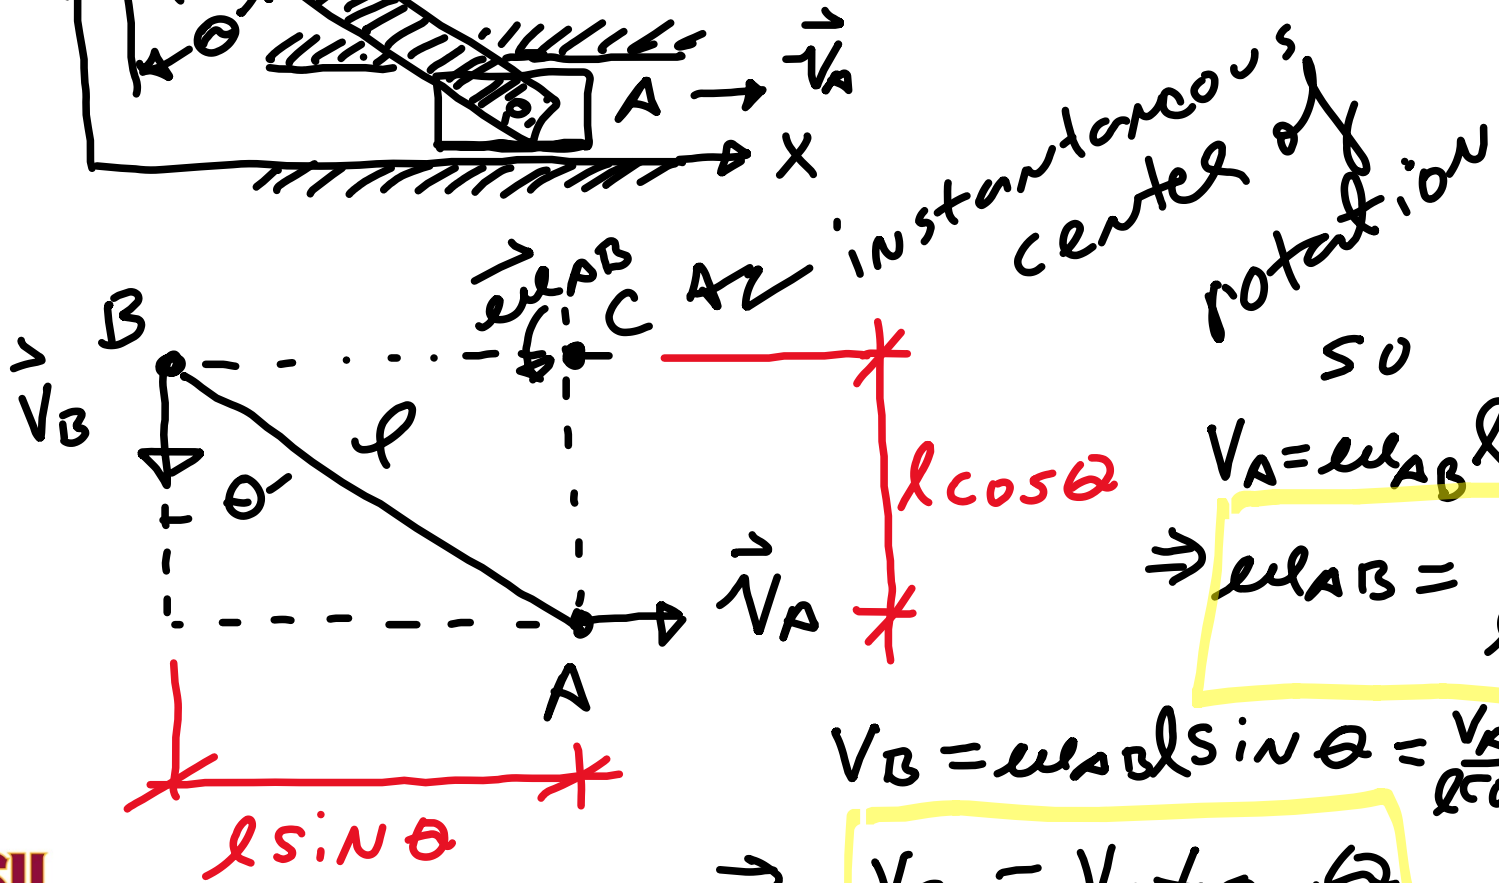 θ
A
→
V_A
X
instantaneous
center of
rotation
ω_AB
B
C
V_B
l
θ
V_A
A
l cos θ
l sin θ
so
V_A = ω_AB l
⇒ ω_AB =
V_B = ω_AB l sin θ = V_A